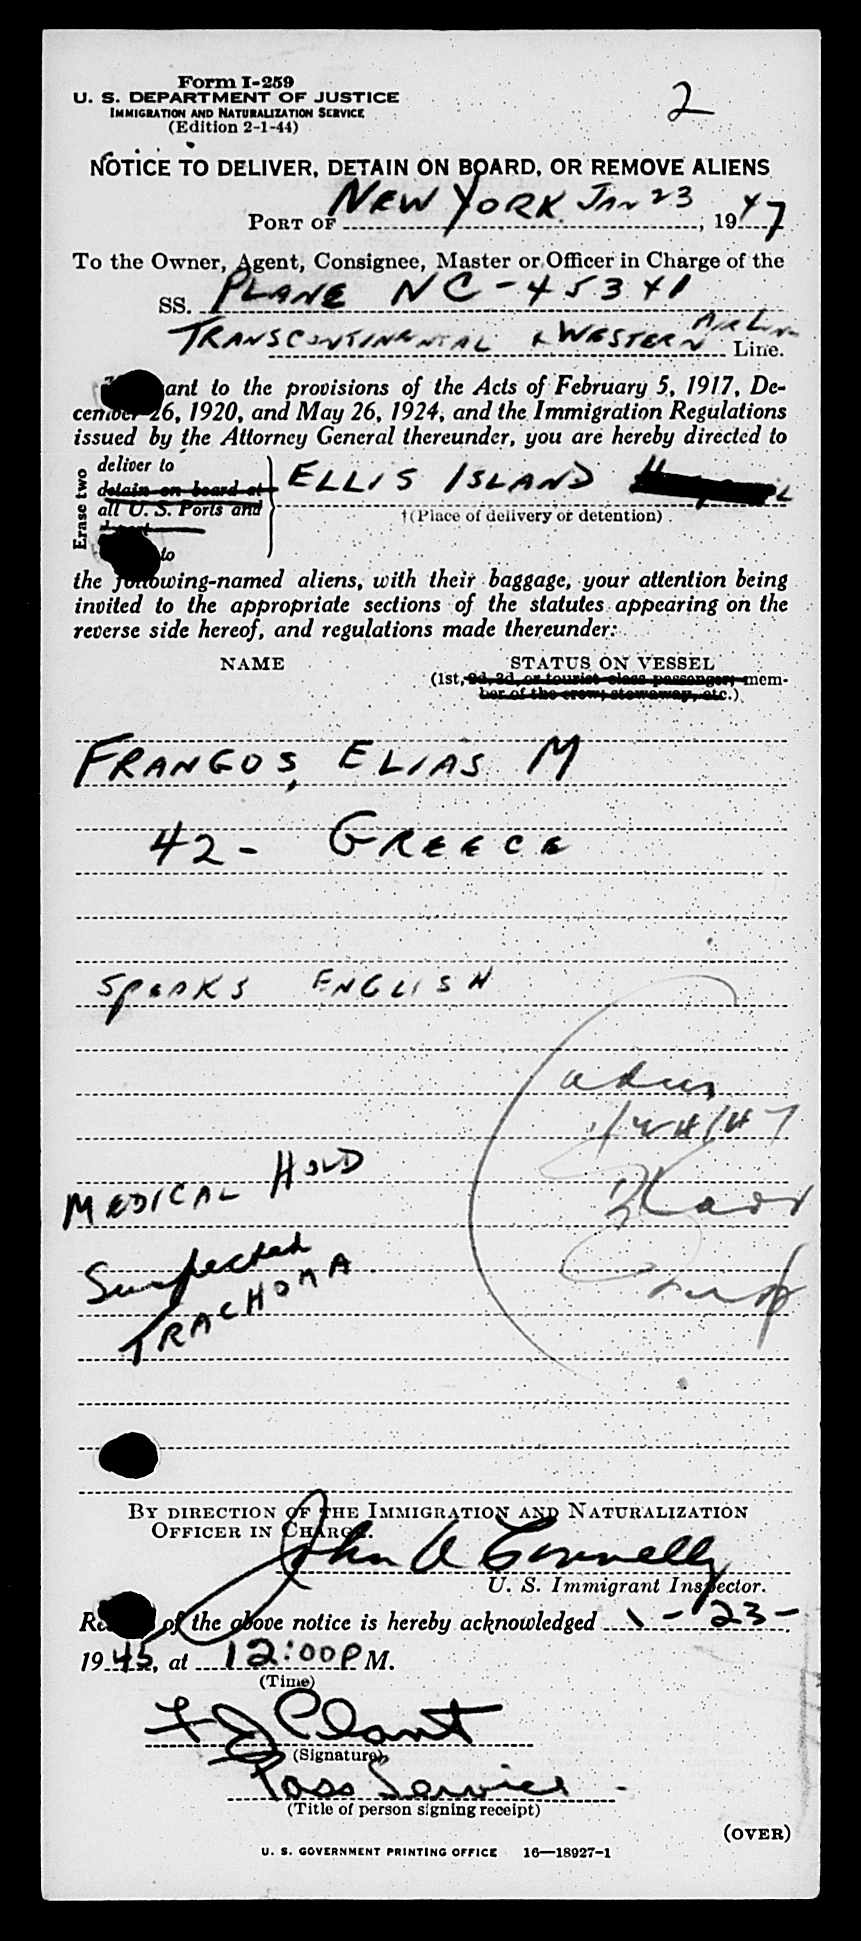 Form I-259
U. S. DEPARTMENT OF JUSTICE
IMMIGRATION AND NATURALIZATION SERVICE
(Edition 2-1-44)
2
NOTICE TO DELIVER, DETAIN ON BOARD, OR REMOVE ALIENS
PORT OF NEW YORK JAN 23, 1947
To the Owner, Agent, Consignee, Master or Officer in Charge of the
SS. PLANE NC-45341
TRANSCONTINENTAL & WESTERN AIR LINE Line.
ant to the provisions of the Acts of February 5, 1917, De-
cember 26, 1920, and May 26, 1924, and the Immigration Regulations
issued by the Attorney General thereunder, you are hereby directed to
Erase two
deliver to
detain on board at
all U. S. Ports and
to
ELLIS ISLAND
†(Place of delivery or detention)
the following-named aliens, with their baggage, your attention being
invited to the appropriate sections of the statutes appearing on the
reverse side hereof, and regulations made thereunder:
NAME STATUS ON VESSEL
(1st, 2d, 3d, or tourist class passenger; mem-
ber of the crew; stowaway, etc.)
FRANGOS, ELIAS M
42 - GREECE
SPEAKS ENGLISH
MEDICAL HOLD
Suspected
TRACHOMA
BY DIRECTION OF THE IMMIGRATION AND NATURALIZATION
OFFICER IN CHARGE.
John A Connelly
U. S. Immigrant Inspector.
of the above notice is hereby acknowledged 1-23-
1945, at 12:00 P M.
(Time)
F J Plant
(Signature)
Pass Service
(Title of person signing receipt)
(OVER)
U. S. GOVERNMENT PRINTING OFFICE 16—18927-1